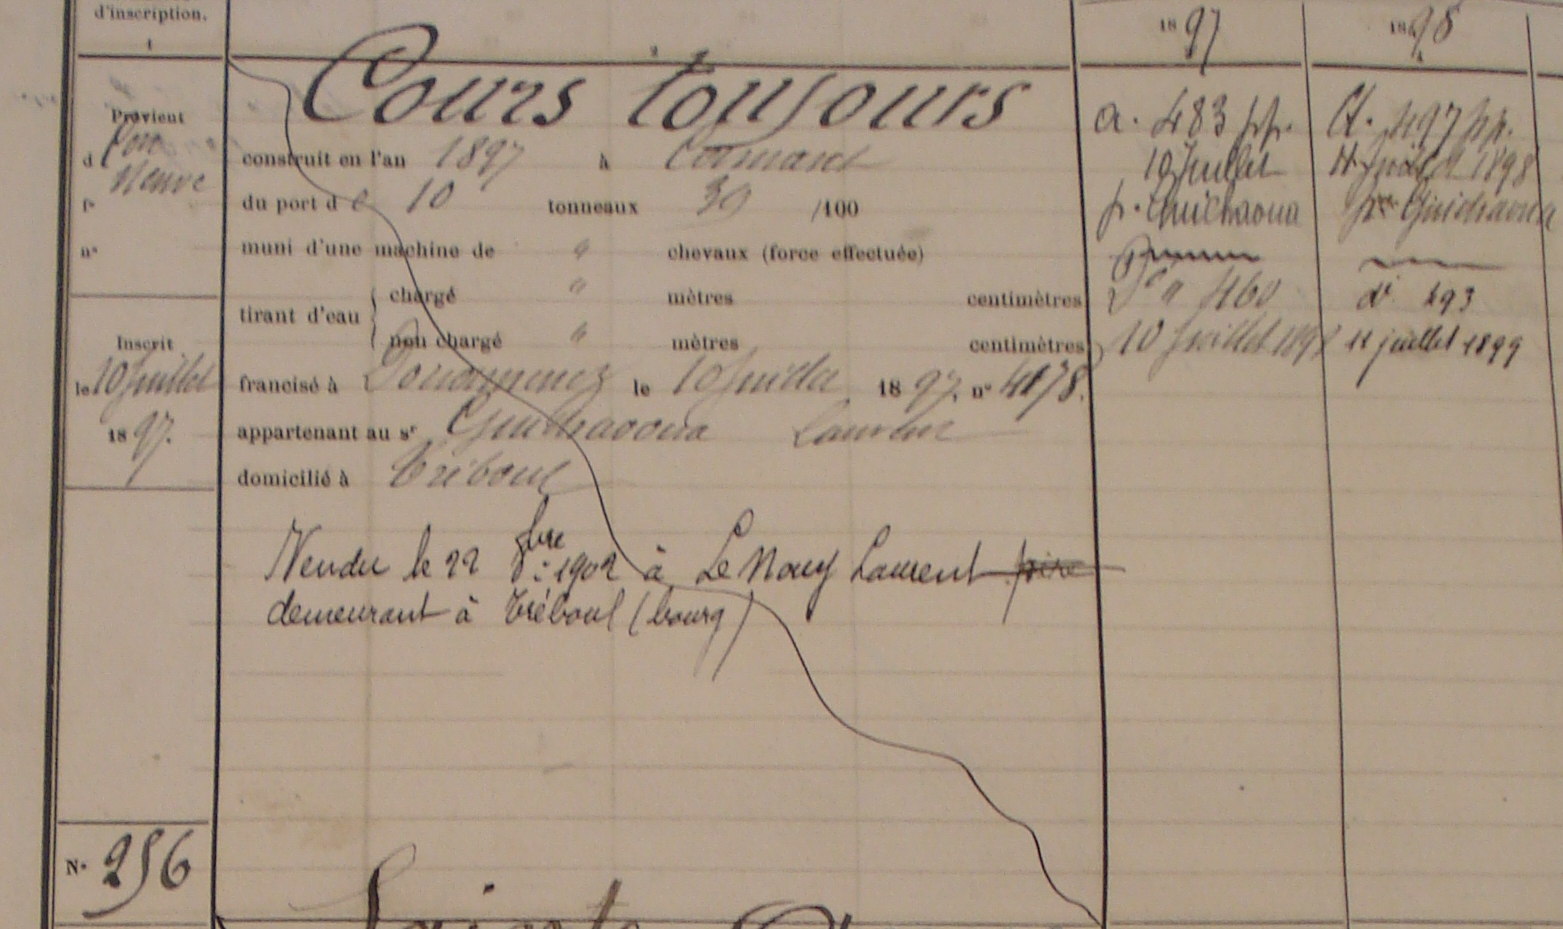 d'inscription.
1
2
1897
1898
Cours toujours
Provient
d
Neuve
construit en l'an 1897 à
fo
du port de 10 tonneaux 39 /100
no
muni d'une machine de " chevaux (force effectuée)
tirant d'eau
chargé " mètres centimètres
non chargé " mètres centimètres
Inscrit
le 10 Juillet
1897.
francisé à Douarnenez le 10 Juillet 1897. no 4178.
appartenant au sr Guichaoua Laurent
domicilié à Tréboul
Vendu le 22 8bre 1902 à Le Nouy Laurent père
demeurant à Tréboul (bourg)
a. 483 pp.
10 Juillet
p. Guichaoua
Do a 460
10 Juillet 1898
Ct. 497 pp.
11 juillet 1898
pr Guichaoua
do 493
11 juillet 1899
No 256
Sainte